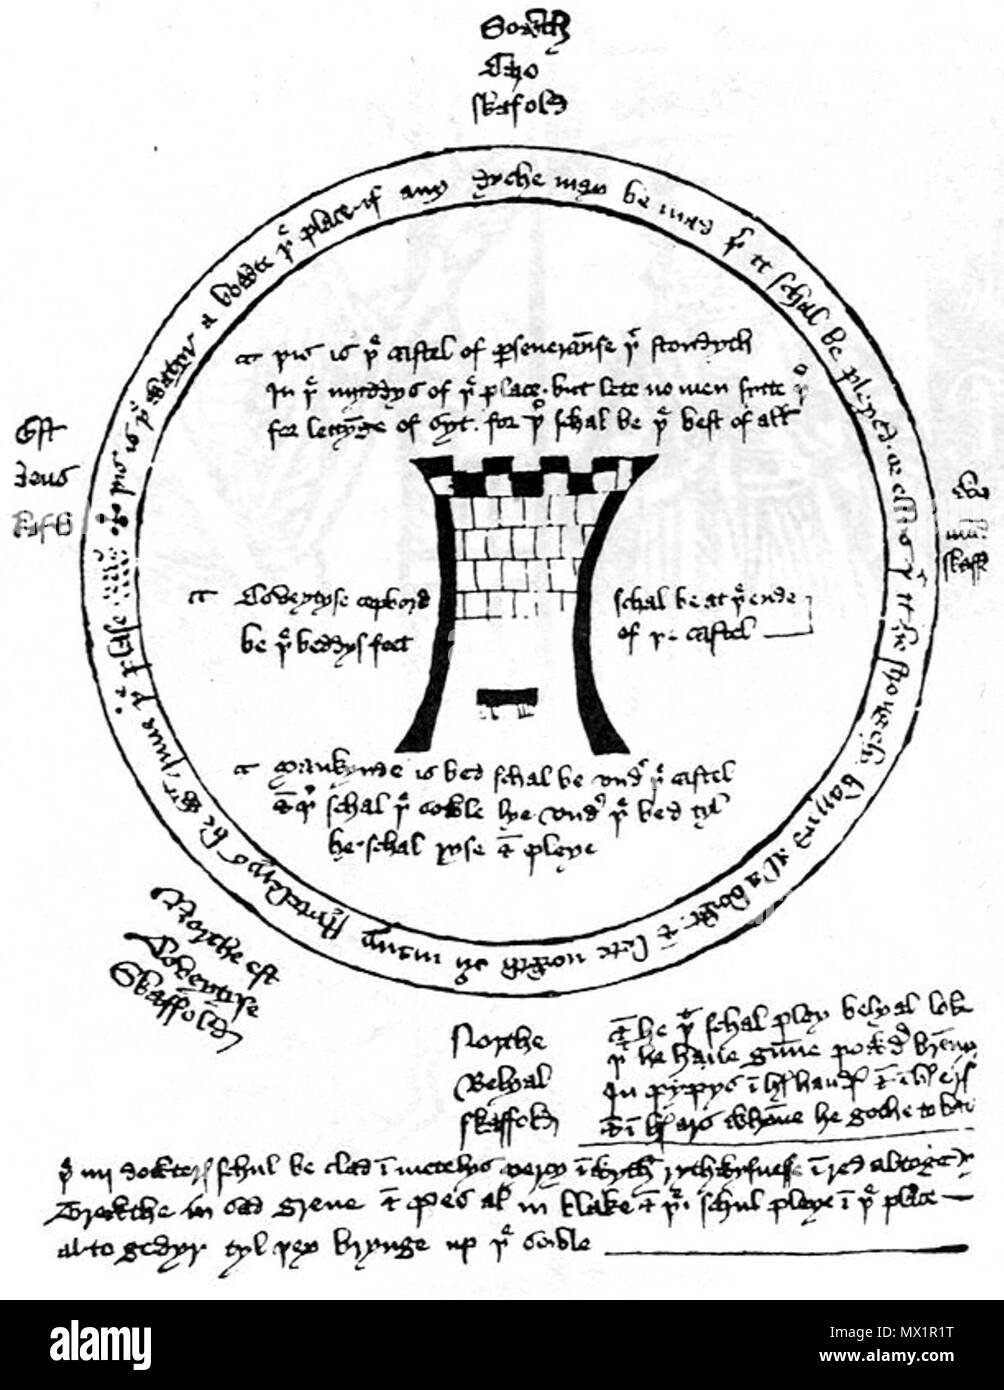 Sowth
Caro
skafold
þis is þe watyr a bowte þe place if any dyche may be mad þer it schal be pleyed or ellys þt it be strongely barryd al a bowt & lete nowth ouyr many stytelerys be wt inne þe plase
Est
deus
skafld
skaff
þis is þe castel of perseueraunse þt stondyth
In þe myddys of þe place but lete no men sytte þer
for lettynge of syt for þer schal be þe best of all
Coveytyse copbord schal be at þe ende
be þe beddys feet of þe castel
Mankynde is bed schal be vndr þe castel
& þer schal þe sowle lye vndr þe bed tyl
he schal ryse & pleye
Northe est
Coveytyse
Skaffold
Northe
Belyal
skaffold
& he þt schal pley belyal loke
þt he haue gunne powdr brennyn
In pypys in hys handys & in hys erys
& in hys ars whanne he gothe to bat
þe iiij dowterys schul be clad in mentelys mercy in wyth rythwysnesse in red altogedyr
Trewthe in sad grene & Pes al in blake & þei schul pleye in þe place
al to gedyr tyl þey brynge up þe sowle
alamy
Image ID: MX1R1T
www.alamy.com